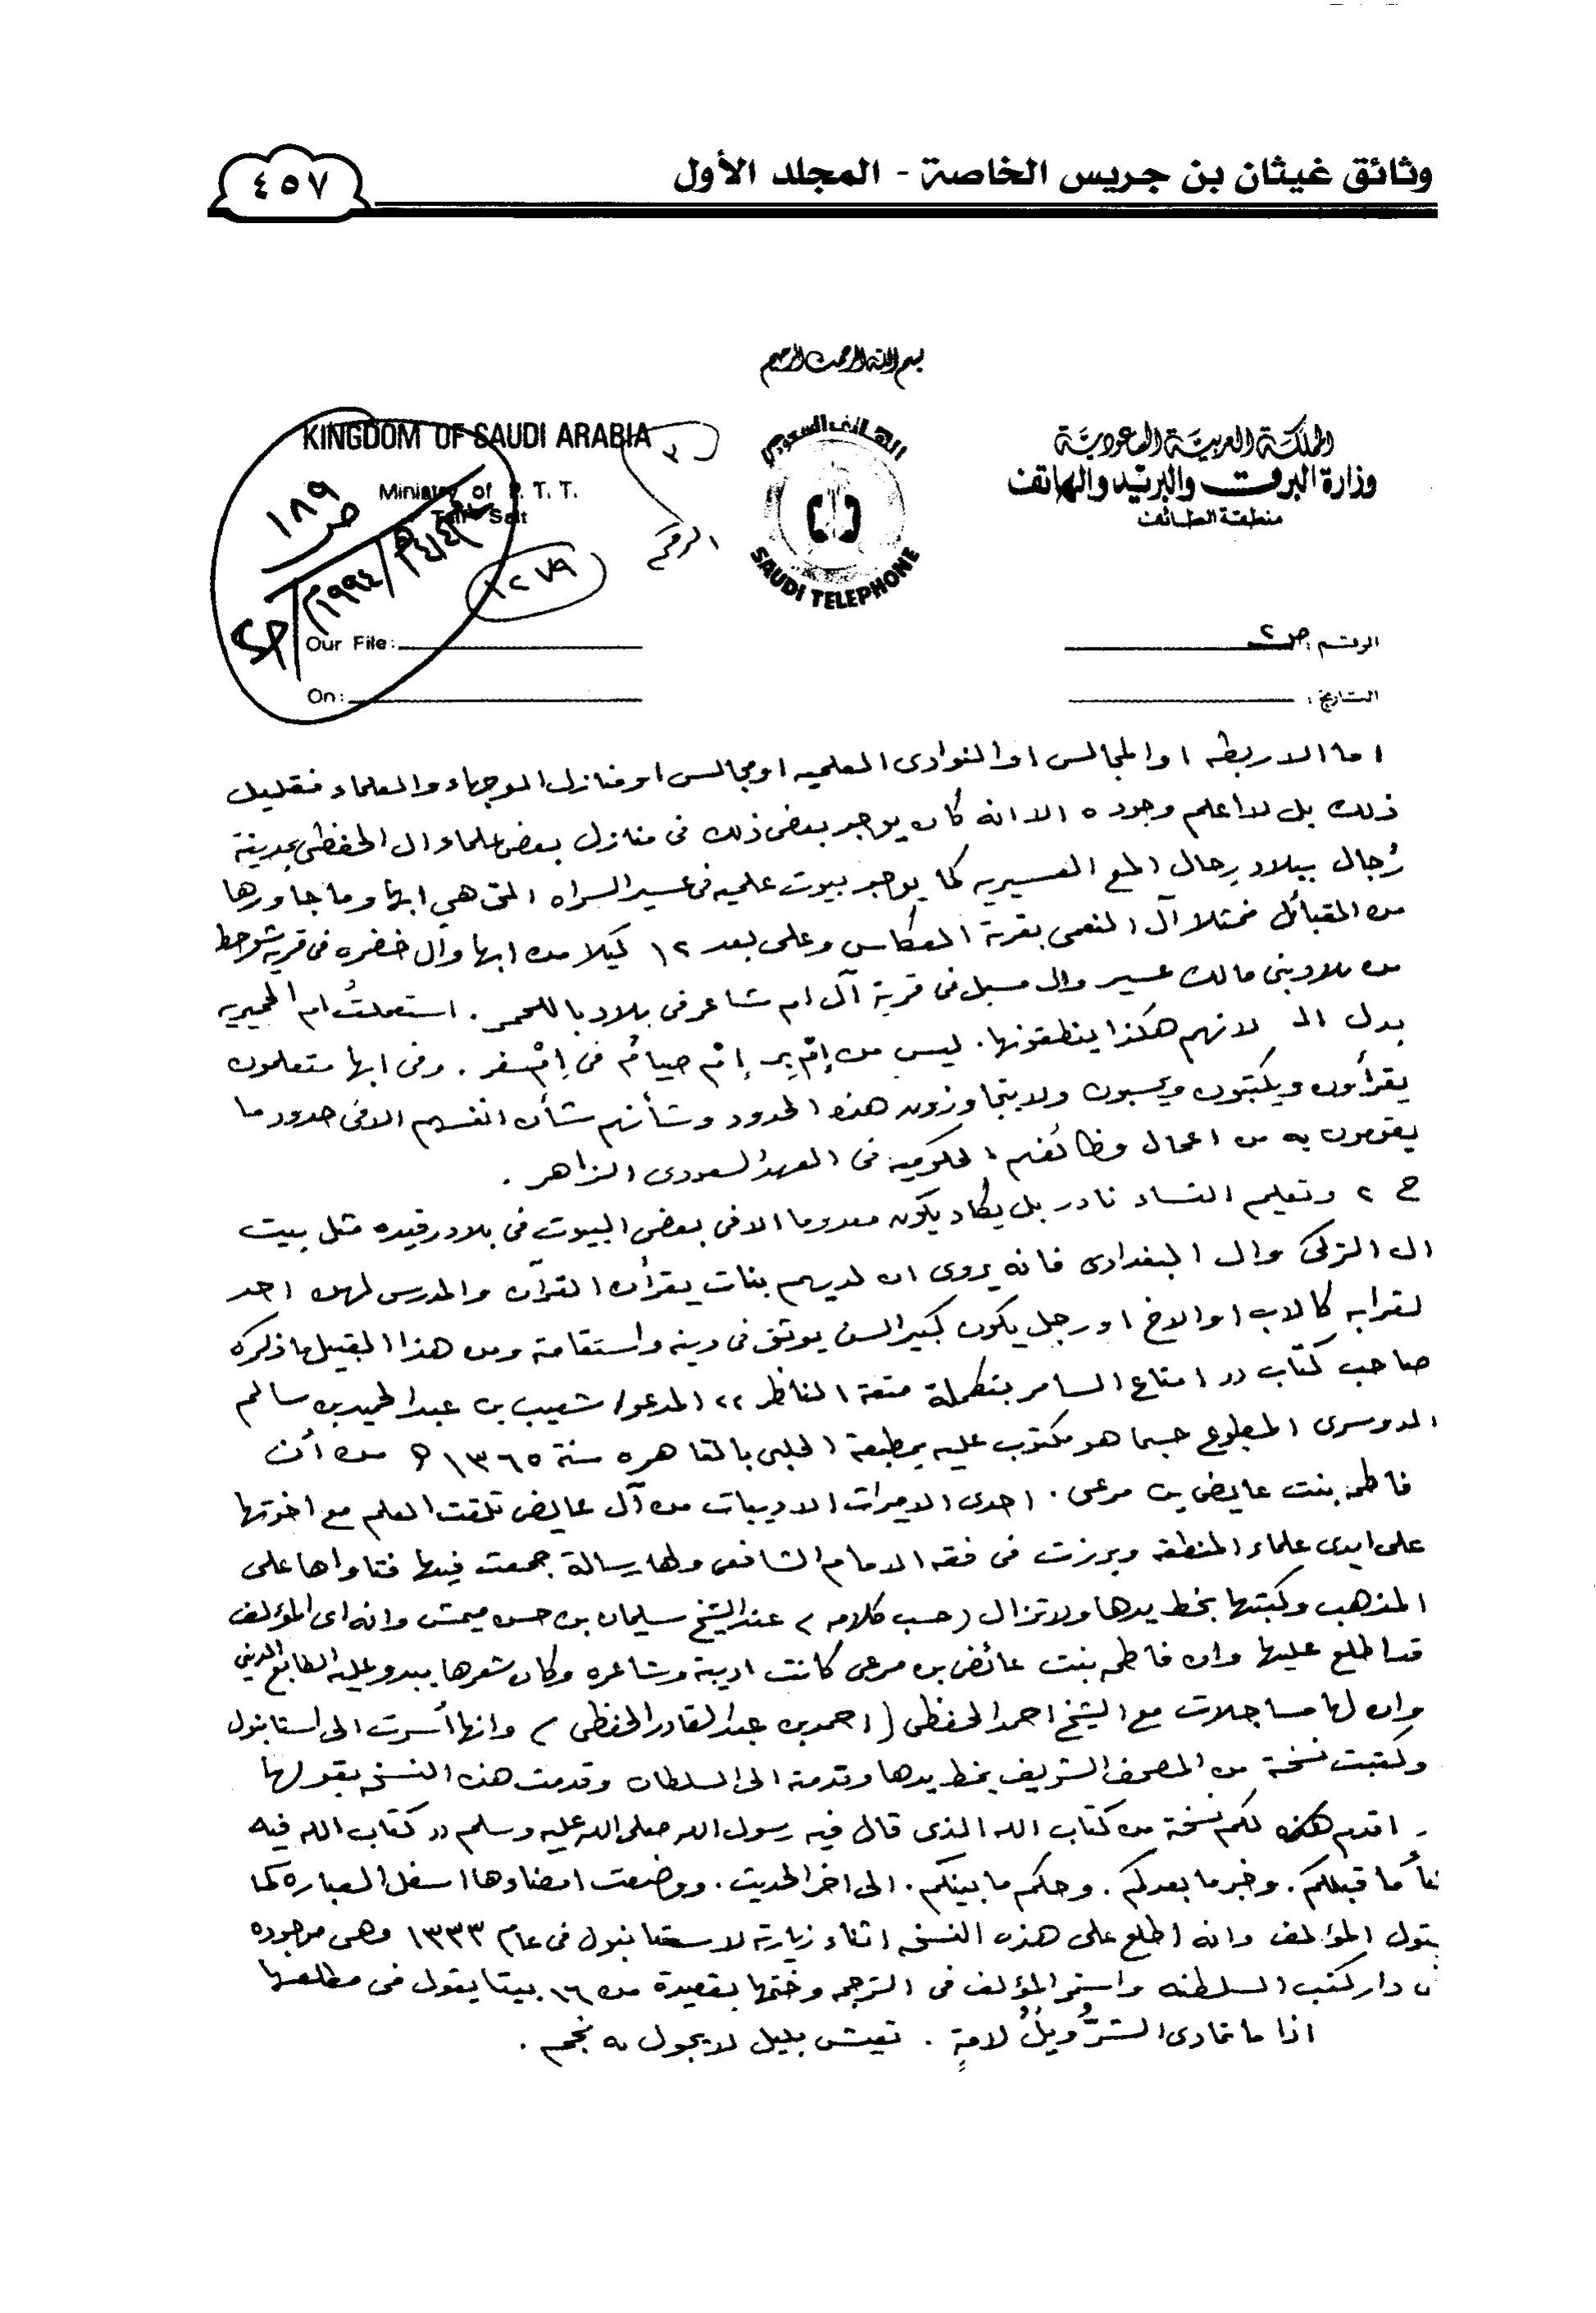 وثائق غيثان بن جريس الخاصة - المجلد الأول
٤٥٧
بسم الله الرحمن الرحيم
KINGDOM OF SAUDI ARABIA
Ministry of P. T. T.
المملكة العربية السعودية
وزارة البرق والبريد والهاتف
منطقة الطائف
الهاتف السعودي
SAUDI TELEPHONE
ص ١٨٩
الرقم
١٢٧٩
Our File:
On:
الرقم : ص ٢
التاريخ :
اما الاربطه او المجالس او النوادى العلميه او مجالس او منازل الوجهاء والعلماء فقليل
ذلك بل لا اعلم وجوده الا انه كان يوجد بعض ذلك فى منازل بعض علماء ال الحفظى بمدينة
رُجال ببلاد رجال المع العسيريه كما يوجد بيوت علميه فى عسير السراه التى هي ابها وما جاورها
من القبائل فمثلا آل النعمى بقرية العكاس وعلى بعد ١٢ كيلا من ابها وآل خضره فى قرية شوحط
من بلاد بنى مالك عسير وال مسبل فى قرية آل ام شاعر فى بلاد باللحمر . استعملتُ ام الحميريه
بدل الـ لانهم هكذا ينطقونها . ليس من إمْ بِر إمْ صيامُ فى إمْ سفر . وفى ابها متعلمون
يقرأون ويكتبون ويحسبون ولا يتجاوزون هذه الحدود وشأنهم شأن انفسهم الا فى حدود ما
يقومون به من اعمال وظائفهم الحكوميه فى العهد السعودى الزاهر .
ج ٢ وتعليم النساء نادر بل يكاد يكون معدوما الا فى بعض البيوت فى بلاد رفيده مثل بيت
ال التزكى وال البغدادى فانه يروى ان لديهم بنات يقرأن القرآن والمدرس لهن احد
لقرابه كالاب او الاخ او رجل يكون كبير السن يوثق فى دينه واستقامته ومن هذا القبيل ما ذكره
صاحب كتاب (( امتاع السامر بتكملة متعة الناظر )) المدعو / شعيب بن عبد الحميد بن سالم
الدوسرى المطبوع حسبما هو مكتوب عليه بمطبعة الحلبى بالقاهره سنة ١٣٦٥ هـ من أن
فاطمه بنت عايض بن مرعى . احدى الاميرات الاديبات من آل عايض تلقت العلم مع اخوتها
على ايدى علماء المنطقه وبرزت فى فقه الامام الشافعى ولها رسالة جمعت فيها فتاواها على
المذهب وكتبتها بخط يدها ولا تزال ( حسب كلامه ) عند الشيخ سليمان بن حسن ميمش وانه اى المؤلف
قد اطلع عليها وان فاطمه بنت عائض بن مرعى كانت اديبة وشاعره وكان شعرها يبدو عليه الطابع الدينى
وان لها مساجلات مع الشيخ احمد الحفظى ( احمد بن عبد القادر الحفظى ) وانها أسرت الى استانبول
وكتبت نسخة من المصحف الشريف بخط يدها وقدمته الى السلطان وقدمت هذه النسخه بقولها
اقدم هذه لكم نسخة من كتاب الله الذى قال فيه رسول الله صلى الله عليه وسلم (( كتاب الله فيه
نبأ ما قبلكم . وخبر ما بعدكم . وحكم ما بينكم . الى اخر الحديث . ووضعت امضاءها اسفل العباره كما
يقول المؤلف وانه اطلع على هذه النسخه اثناء زيارته لاستانبول فى عام ١٣٣٣ وهى موجوده
فى دار كتب السلطنه واستمر المؤلف فى الترجمه وختمها بقصيدة من ١٦ بيتا يقول فى مطلعها
اذا ما تمادى الشرُّ ويلُ لامةٍ . تعيش بليل لا يجول به نجم .